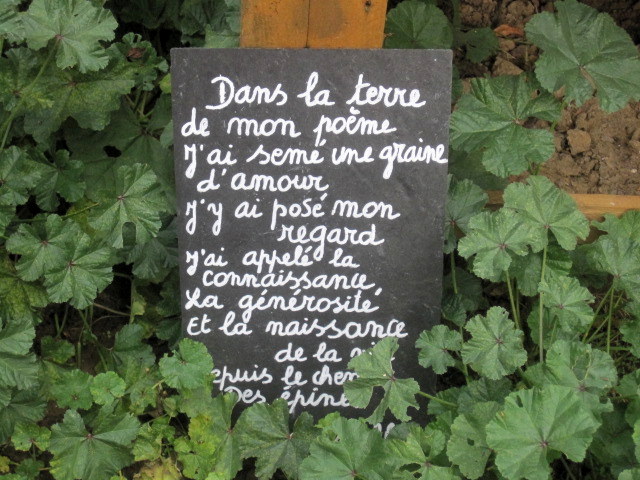 Dans la terre
de mon poème
J'ai semé une graine
d'amour
J'y ai posé mon
regard
J'ai appelé la
connaissance,
La générosité,
Et la naissance
de la
le
Des